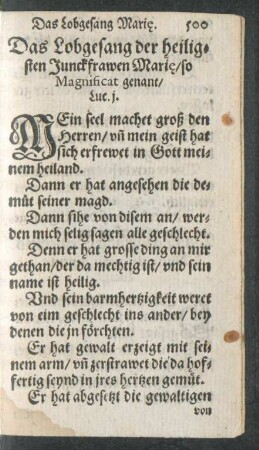 Das Lobgesang Marię. 500
Das Lobgesang der heilig-
sten Junckfrawen Marię/so
Magnificat genant/
Luc. j.
MEin seel machet groß den
Herren/ vñ mein geist hat
sich erfrewet in Gott mei-
nem heiland.
Dann er hat angesehen die de-
müt seiner magd.
Dann sihe von disem an/ wer-
den mich selig sagen alle geschlecht.
Denn er hat grosse ding an mir
gethan/der da mechtig ist/ vnd sein
name ist heilig.
Vnd sein barmhertzigkeit weret
von eim geschlecht ins ander/ bey
denen die jn förchten.
Er hat gewalt erzeigt mit sei-
nem arm/ vñ zerstrawet die da hof-
fertig seynd in jres hertzen gemüt.
Er hat abgesetzt die gewaltigen
von